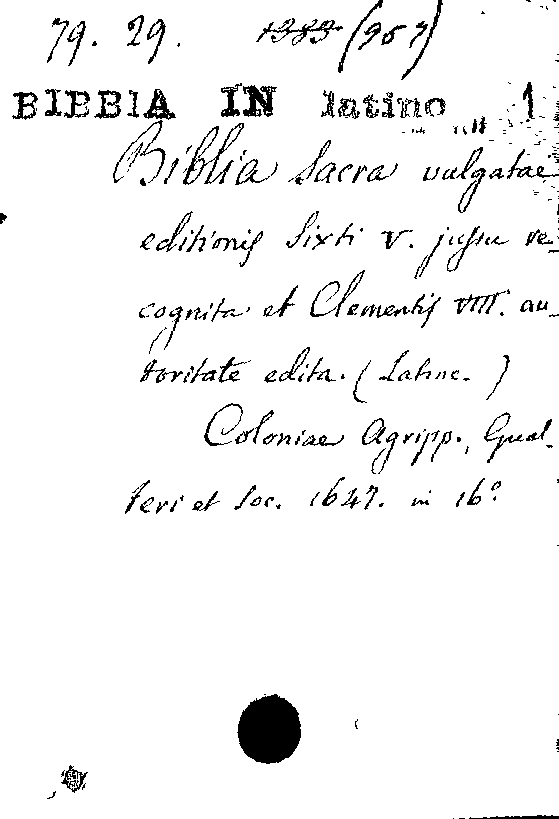 79. 29. 1383 (957)
BIBBIA IN latino 1
Biblia sacra vulgatae
editionis Sixti V. jussu re-
cognita et Clementis VIII. au-
toritate edita. (Latine.)
Coloniae Agripp., Gual-
teri et Soc. 1647. in 16º.